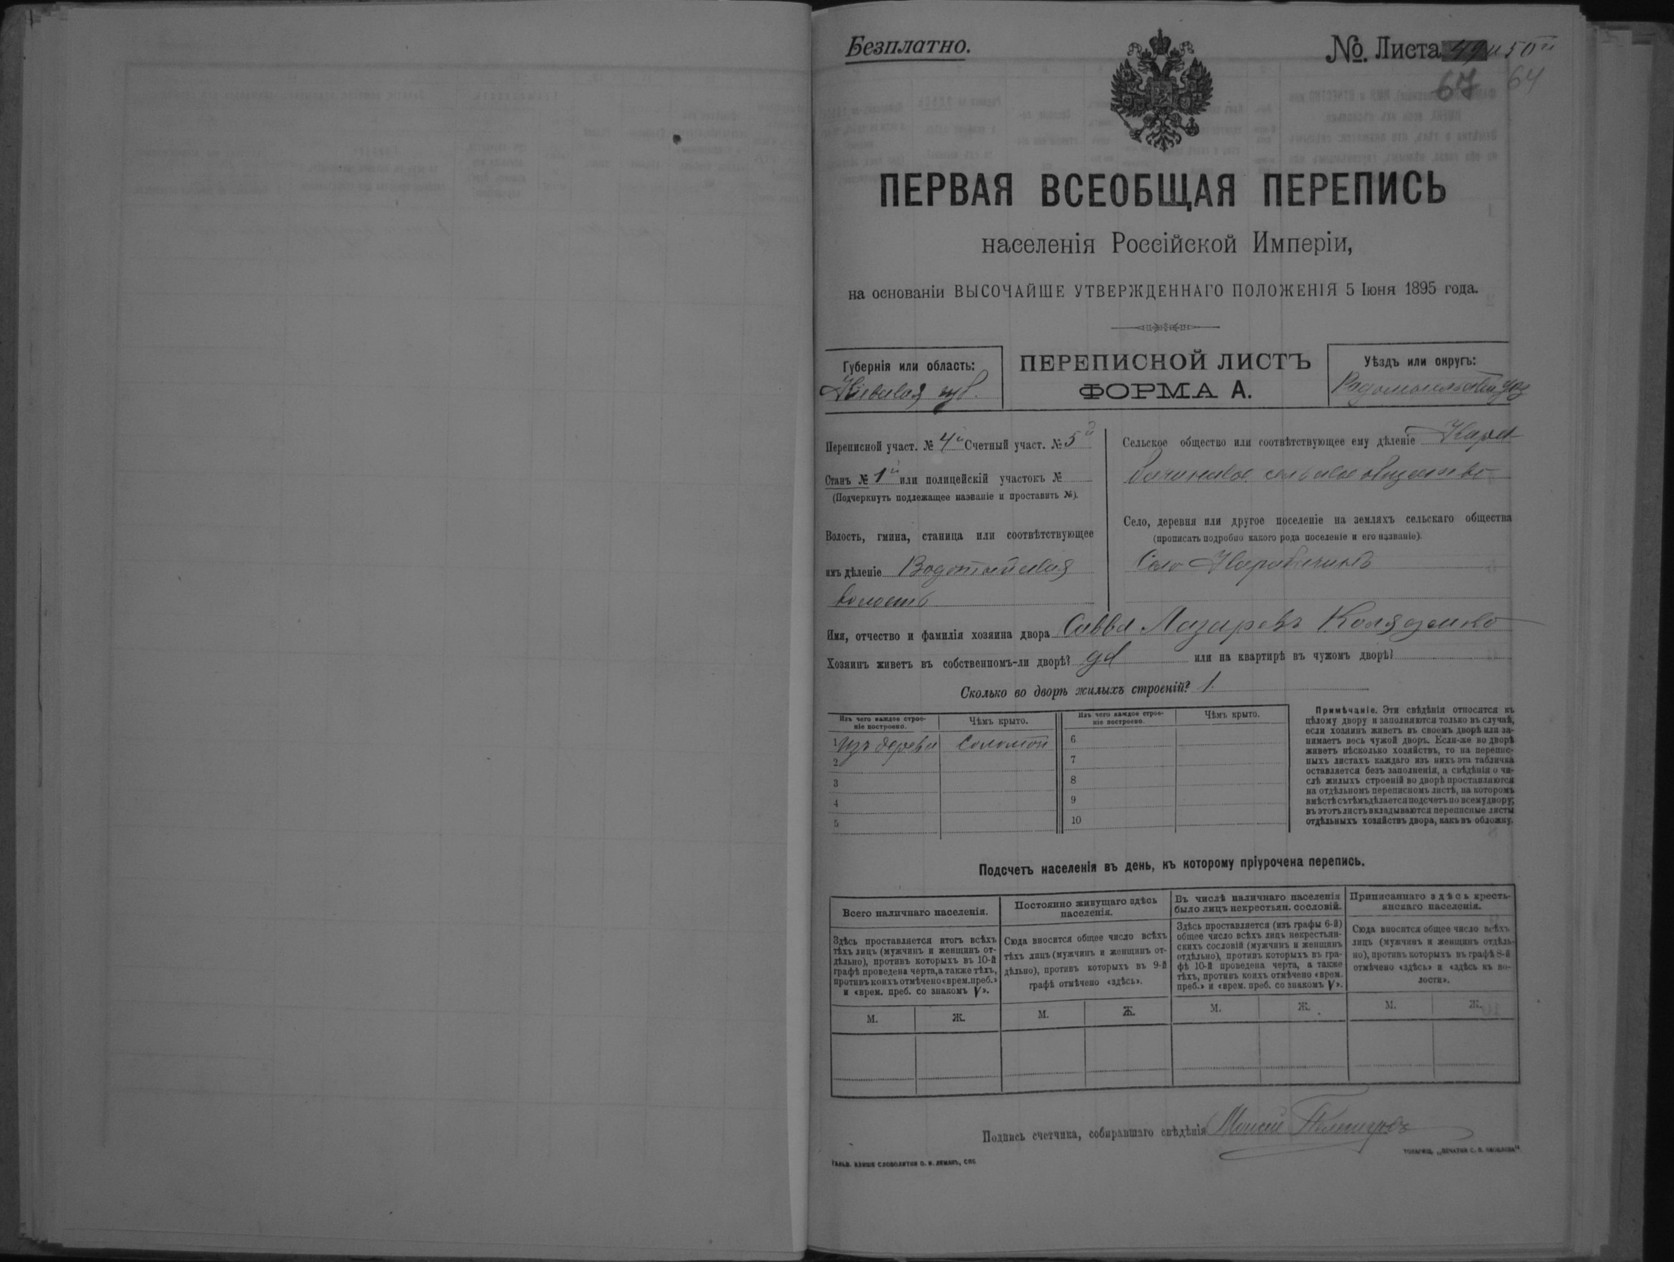 Безплатно.
№. Листа 50й
67 64
ПЕРВАЯ ВСЕОБЩАЯ ПЕРЕПИСЬ
населенія Россійской Имперіи,
на основаніи ВЫСОЧАЙШЕ УТВЕРЖДЕННАГО ПОЛОЖЕНІЯ 5 Іюня 1895 года.
Губернія или область:
ПЕРЕПИСНОЙ ЛИСТЪ
ФОРМА А.
Уѣздъ или округъ:
Переписной участ. № 4й Счетный участ. № 5й
Станъ № 1й или полицейскій участокъ №
(Подчеркнуть подлежащее названіе и проставить №).
Волость, гмина, станица или соотвѣтствующее
имъ дѣленіе Водотыйская
волость
Сельское общество или соотвѣтствующее ему дѣленіе Кара-
бачинское сельское общество
Село, деревня или другое поселеніе на земляхъ сельскаго общества
(прописать подробно какого рода поселеніе и его названіе).
Село Карабачинъ
Имя, отчество и фамилія хозяина двора Савва Лазаревъ Коляденко
Хозяинъ живетъ въ собственномъ-ли дворѣ? да или на квартирѣ въ чужомъ дворѣ?
Сколько во дворѣ жилыхъ строеній? 1.
Изъ чего каждое строе-
ніе построено.
Чѣмъ крыто.
Изъ чего каждое строе-
ніе построено.
Чѣмъ крыто.
1 Изъ дерева соломой 6
2 7
3 8
4 9
5 10
Примѣчаніе. Эти свѣдѣнія относятся къ
цѣлому двору и заполняются только въ случаѣ,
если хозяинъ живетъ въ своемъ дворѣ или за-
нимаетъ весь чужой дворъ. Если-же во дворѣ
живетъ нѣсколько хозяйствъ, то на перепис-
ныхъ листахъ каждаго изъ нихъ эта табличка
оставляется безъ заполненія, а свѣдѣнія о чи-
слѣ жилыхъ строеній во дворѣ проставляются
на отдѣльномъ переписномъ листѣ, на которомъ
вмѣстѣ съ тѣмъ дѣлается подсчетъ по всему двору;
въ этотъ листъ вкладываются переписные листы
отдѣльныхъ хозяйствъ двора, какъ въ обложку.
Подсчетъ населенія въ день, къ которому пріурочена перепись.
Всего наличнаго населенія.
Постоянно живущаго здѣсь
населенія.
Въ числѣ наличнаго населенія
было лицъ некрестьян. сословій.
Приписаннаго здѣсь кресть-
янскаго населенія.
Здѣсь проставляется итогъ всѣхъ
тѣхъ лицъ (мужчинъ и женщинъ от-
дѣльно), противъ которыхъ въ 10-й
графѣ проведена черта, а также тѣхъ,
противъ коихъ отмѣчено «врем. преб.»
и «врем. преб. со знакомъ V».
Сюда вносится общее число всѣхъ
тѣхъ лицъ (мужчинъ и женщинъ от-
дѣльно), противъ которыхъ въ 9-й
графѣ отмѣчено «здѣсь».
Здѣсь проставляется (изъ графы 6-й)
общее число всѣхъ лицъ некрестьян-
скихъ сословій (мужчинъ и женщинъ
отдѣльно), противъ которыхъ въ гра-
фѣ 10-й проведена черта, а также
тѣхъ, противъ коихъ отмѣчено «врем.
преб.» и «врем. преб. со знакомъ V».
Сюда вносится общее число всѣхъ
лицъ (мужчинъ и женщинъ отдѣль-
но), противъ которыхъ въ графѣ 8-й
отмѣчено «здѣсь» и «здѣсь въ во-
лости».
М. Ж. М. Ж. М. Ж. М. Ж.
Подпись счетчика, собиравшаго свѣдѣнія Моисей
ГАЛЬВ. КЛИШЕ СЛОВОЛИТНИ О. И. ЛЕМАНЪ, СПБ.